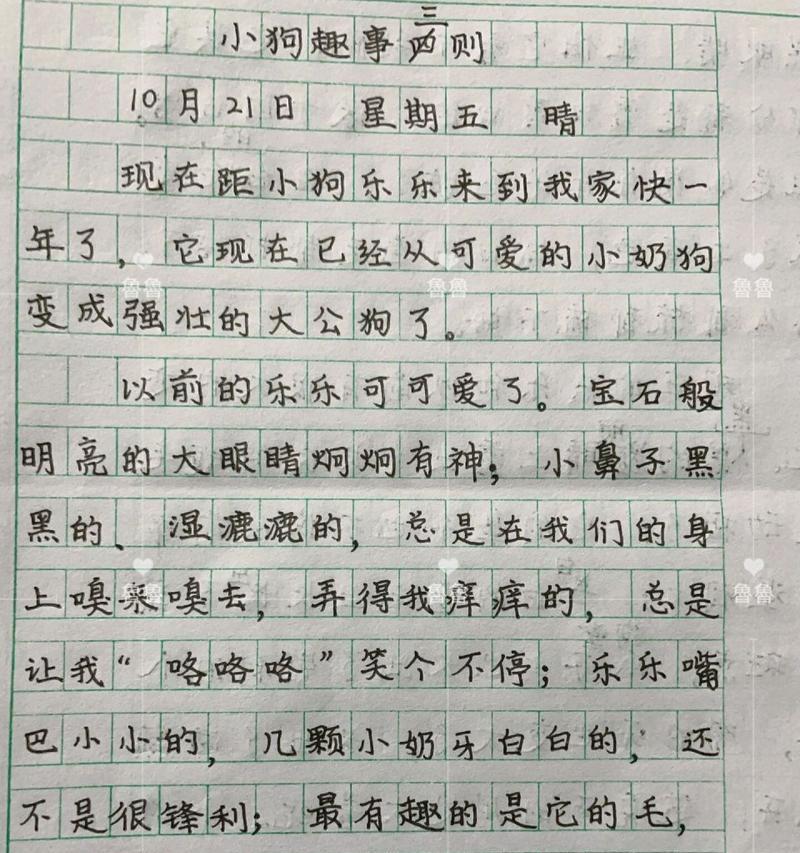 小狗趣事三则
10月21日 星期五 晴
现在距小狗乐乐来到我家快一
年了，它现在已经从可爱的小奶狗
变成强壮的大公狗了。
以前的乐乐可可爱了。宝石般
明亮的大眼睛炯炯有神；小鼻子黑
黑的、湿漉漉的，总是在我们的身
上嗅来嗅去，弄得我痒痒的，总是
让我“咯咯咯”笑个不停；乐乐嘴
巴小小的，几颗小奶牙白白的，还
不是很锋利；最有趣的是它的毛，
鲁鲁
鲁鲁
鲁鲁
鲁鲁
鲁鲁
鲁鲁